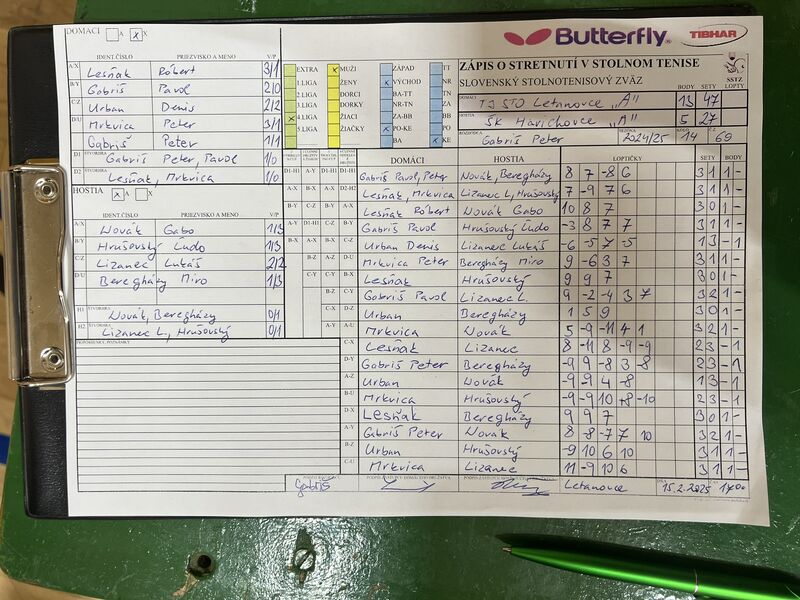 DOMÁCI A x X
Butterfly
TIBHAR
IDENT.ČÍSLO PRIEZVISKO A MENO V/P
A/X Lesňák Róbert 3/1
B/Y Gabriš Pavol 2/0
C/Z Urban Denis 2/2
D/U Mrkvica Peter 3/1
Gabriš Peter 1/1
D1 ŠTVORHRA Gabriš Peter, Pavol 1/0
D2 ŠTVORHRA Lesňák, Mrkvica 1/0
HOSTIA x A X
IDENT.ČÍSLO PRIEZVISKO A MENO V/P
A/X Novák Gabo 1/3
B/Y Hrušovský Ľudo 1/3
C/Z Lizanec Lukáš 2/2
D/U Beregházy Miro 1/3
H1 ŠTVORHRA Novák, Beregházy 0/1
H2 ŠTVORHRA Lizanec L, Hrušovský 0/1
PRIPOMIENKY, POZNÁMKY
EXTRA x MUŽI ZÁPAD TT
1.LIGA ŽENY x VÝCHOD NR
2.LIGA DORCI BA-TT TN
3.LIGA DORKY NR-TN ZA
x 4.LIGA ŽIACI ZA-BB BB
5.LIGA ŽIAČKY x PO-KE PO
BA x KE
ZÁPIS O STRETNUTÍ V STOLNOM TENISE
SLOVENSKÝ STOLNOTENISOVÝ ZVÄZ
SSTZ
BODY SETY LOPTY
DOMÁCI TJ STO Letanovce "A" 13 47
HOSTIA ŠK Harichovce "A" 5 27
ROZHODCA Gabriš Peter SEZÓNA 2024/25 KOLO 14 Č. 69
DOMÁCI HOSTIA LOPTIČKY SETY BODY
Gabriš Pavol, Peter Novák, Beregházy 8 7 -8 6 3 1 1 -
Lesňák, Mrkvica Lizanec L, Hrušovský 7 -9 7 6 3 1 1 -
Lesňák Róbert Novák Gabo 10 8 7 3 0 1 -
Gabriš Pavol Hrušovský Ľudo -3 8 7 7 3 1 1 -
Urban Denis Lizanec Lukáš -6 -5 7 -5 1 3 - 1
Mrkvica Peter Beregházy Miro 9 -6 3 7 3 1 1 -
Lesňák Hrušovský 9 9 7 3 0 1 -
Gabriš Pavol Lizanec L. 9 -2 -4 3 7 3 2 1 -
Urban Beregházy 1 5 9 3 0 1 -
Mrkvica Novák 5 -9 -11 4 1 3 2 1 -
Lesňák Lizanec 8 -11 8 -9 -9 2 3 - 1
Gabriš Peter Beregházy -9 9 -8 3 -8 2 3 - 1
Urban Novák -9 -9 4 -8 1 3 - 1
Mrkvica Hrušovský -9 -9 10 +8 -10 2 3 - 1
Lesňák Beregházy 9 9 7 3 0 1 -
Gabriš Peter Novák 8 -8 -7 7 10 3 2 1 -
Urban Hrušovský -9 10 6 10 3 1 1 -
Mrkvica Lizanec 11 -9 10 6 3 1 1 -
Gabriš
Letanovce 15.2.2025 17:00